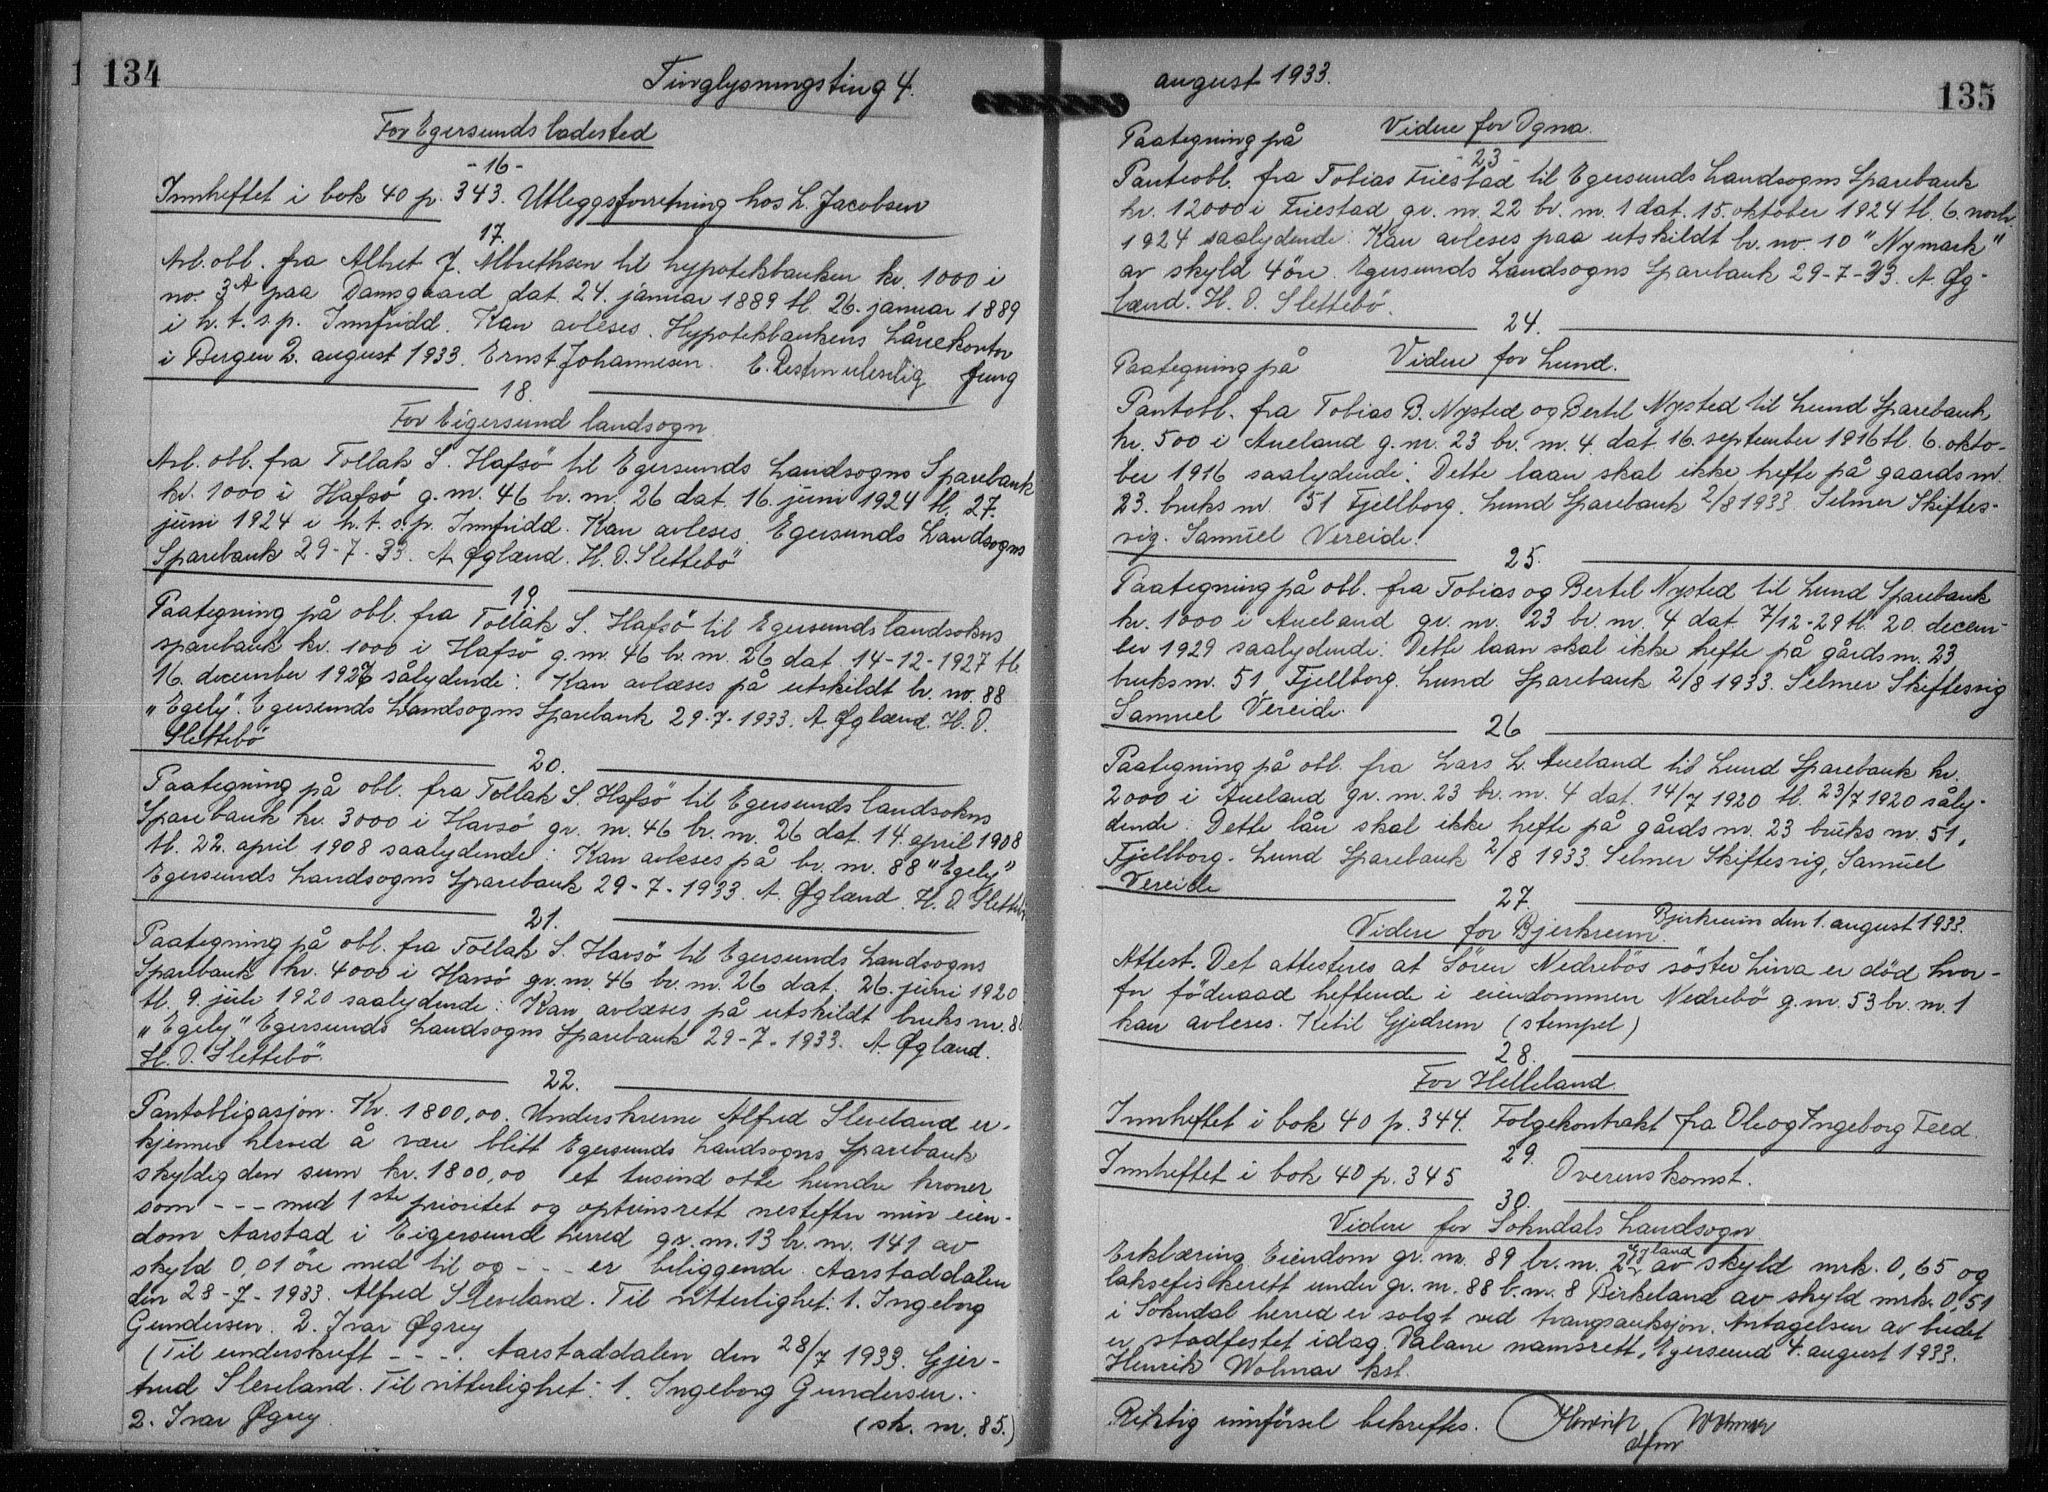 134
Tinglysningsting 4.
For Egersunds ladested
-16-
Innheftet i bok 40 p. 343. Utleggsforretning hos L. Jacobsen
17.
Arl. obl. fra Albret J. Albrethsen til hypotekbanken kr. 1000 i
no. 3A paa Damsgaard dat. 24. januar 1889 tl. 26. januar 1889
i h. t. s. p. Innfridd. Kan avleses. Hypotekbankens Lånekontor
i Bergen 2. august 1933. Ernst Johannesen. E. Resten uleselig Jung
18.
For Eigersund landsogn.
Arl. obl. fra Tollak S. Hafsö til Egersunds Landsogns Sparebank
kr. 1000 i Hafsö g. nr. 46 br. nr. 26 dat. 16. juni 1924 tl. 27.
juni 1924 i h. t. s. p. Innfridd. Kan avleses. Egersunds Landsogns
Sparebank 29-7-33. A. Øglænd. H. O. Slettebö
19
Paategning på obl. fra Tollak S. Hafsö til Egersunds landsokns
sparebank kr. 1000 i Hafsö g. nr. 46 br. nr. 26 dat. 14-12-1927 tl.
16. december 1927 sålydende: Kan avlæses på utskildt br. no. 88
"Egely". Egersunds Landsogns Sparebank 29-7-1933. A. Øglænd. H. O.
Slettebö
20.
Paategning på obl. fra Tollak S. Hafsö til Egersunds landsokns
Sparebank kr. 3000 i Havsö gr. nr. 46 br. nr. 26 dat. 14. april 1908
tl. 22. april 1908 saalydende: Kan avleses på br. nr. 88 "Egely"
Egersunds Landsogns Sparebank 29-7-1933. A. Øglænd. H. O. Slettebö
21.
Paategning på obl. fra Tollak S. Havsö til Egersunds Landsogns
Sparebank kr. 4000 i Havsö gr. nr. 46 br. nr. 26 dat. 26. juni 1920
tl. 9. juli 1920 saalydende: Kan avlæses på utskildt bruks nr. 88
"Egely" Egersunds Landsogns Sparebank 29-7-1933. A. Øglænd.
H. O. Slettebö.
22.
Pantobligasjon. Kr. 1800,00. Underskrevne Alfred Sleveland er-
kjenner herved å være blitt Egersunds Landsogns Sparebank
skyldig den sum kr. 1800,00 et tusind otte hundre kroner
som --- med 1ste prioritet og optrinsrett nestefter min eien-
dom Aarstad i Eigersund herred gr. nr. 13 br. nr. 141 av
skyld 0,01 öre med til og --- er beliggende. Aarstaddalen
den 28-7-1933. Alfred Sleveland. Til vitterlighet: 1. Ingeborg
Gundersen. 2. Ivar Øgrey
(Til underskrift ---. Aarstaddalen den 28/7 1933. Gjer-
trud Sleveland. Til vitterlighet: 1. Ingeborg Gundersen.
2. Ivar Øgrey.
(sk. nr. 85.)
august 1933.
135
Videre for Ogna.
Paategning på
-23-
Panteobl. fra Tobias Friestad til Egersunds Landsogns Sparebank
kr. 12000 i Friestad gr. nr. 22 br. nr. 1 dat. 15. oktober 1924 tl. 6. novbr.
1924 saalydende: Kan avleses paa utskildt br. no. 10 "Nymark"
av skyld 4 öre. Egersunds Landsogns Sparebank 29-7-33. A. Øg-
lænd. H. O. Slettebö.
24.
Videre for Lund.
Paategning på
Pantobl. fra Tobias B. Nysted og Bertil Nysted til Lund Sparebank
kr. 500 i Aueland g. nr. 23 br. nr. 4. dat 16. september 1916 tl. 6. okto-
ber 1916 saalydende: Dette laan skal ikke hefte på gaards nr
23. bruks nr 51 Fjellborg. Lund Sparebank 2/8 1933 Selmer Skiftes-
vig. Samuel Vereide.
25.
Paategning på obl. fra Tobias og Bertil Nysted til Lund Sparebank
kr. 1000 i Aueland gr. nr. 23 br. nr. 4 dat 7/12-29 tl. 20. decem-
ber 1929 saalydende: Dette laan skal ikke hefte på gårdsnr. 23
bruksnr. 51. Fjellborg. Lund Sparebank 2/8 1933. Selmer Skiftesvig
Samuel Vereide.
26
Paategning på obl. fra Lars L. Aueland til Lund Sparebank kr.
2000 i Aueland gr. nr. 23 br. nr. 4 dat. 14/7 1920 tl. 23/7 1920 såly-
dende: Dette lån skal ikke hefte på gårds nr. 23 bruks nr. 51,
Fjellborg. Lund Sparebank 2/8 1933. Selmer Skiftesvig, Samuel
Vereide
27.
Videre for Bjerkreim. Bjerkreim den 1. august 1933.
Attest. Det attesteres at Sören Nedrebös söster Lina er död hvor-
for föderaad heftende i eiendommen Nedrebö g. nr. 53 br. nr. 1
kan avleses. Ketil Gjedrem (stempel)
28.
For Helleland.
Innheftet i bok 40 p. 344. Folgekontrakt fra Ole og Ingeborg Feed.
29.
Innheftet i bok 40 p. 345 Overenskomst.
30.
Videre for Sokndals Landsogn
Erklæring. Eiendom gr. nr. 89 br. nr. 2 av skyld mrk. 0,65 og
laksefiskerett under gr. nr. 88 b. nr. 8 Birkeland av skyld mrk. 0,51
i Sokndal herred er solgt ved tvangsauksjon. Antagelsen av budet
er stadfestet idag. Dalane namsrett, Egersund 4. august 1933.
Henrik Wolmar kst.
Riktig innförsel bekreftes. Henrik Wolmar